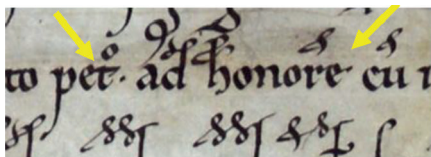 to pet°. ad honore. cū